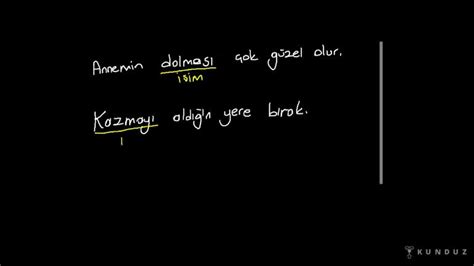 Annemin dolması çok güzel olur.
isim
Kazmayı aldığın yere bırak.
I
KUNDUZ